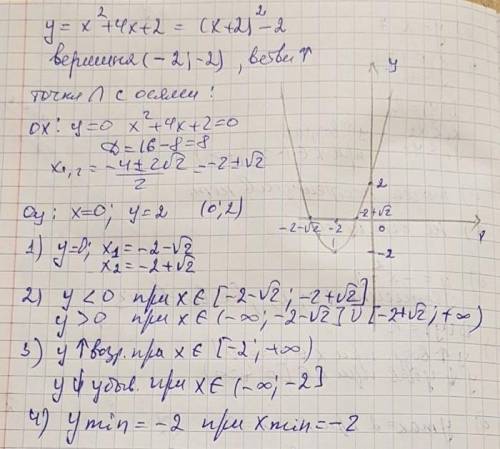 y = x²+4x+2 = (x+2)²-2
вершина (-2;-2), ветви ↑
точки ∩ с осями:
ox: y=0 x²+4x+2=0
D=16-8=8
x₁,₂ = (-4±2√2)/2 = -2±√2
Oy: x=0; y=2 (0;2)
1) y=0; x₁ = -2-√2
x₂ = -2+√2
2) y<0 при x∈[-2-√2; -2+√2]
y>0 при x∈(-∞; -2-√2]∪[-2+√2; +∞)
3) y↑возр. при x∈[-2; +∞)
y↓убыв. при x∈(-∞; -2]
4) y min = -2 при x min = -2
y
2
-2-√2 -2 -2+√2 0
-2